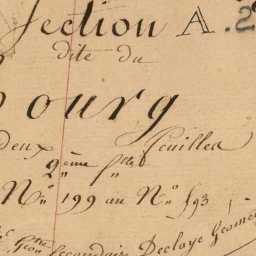 Section A. 2
dite du
Bourg
deux feuilles
2ème f
No 199 au No 593
Secondaire Decloye Géomè